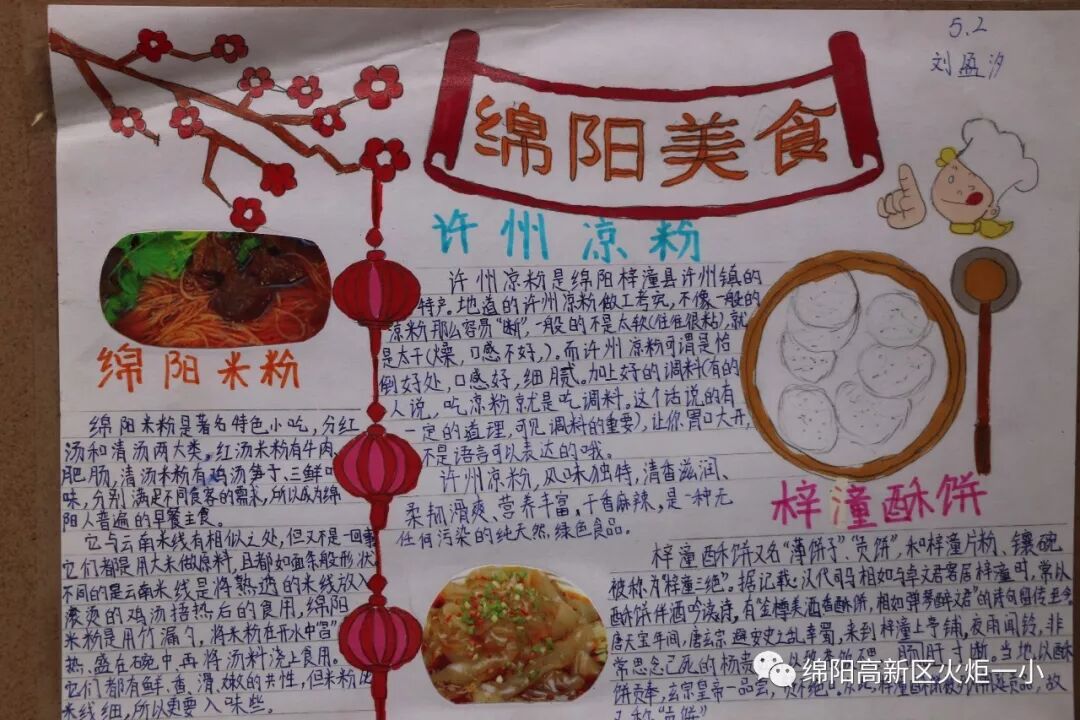 5.2
刘盈汐
绵阳美食
许州凉粉
许州凉粉是绵阳梓潼县许州镇的
特产。地道的许州凉粉做工考究,不像一般的
凉粉那么容易“断”,一般的不是太软(往往很粘),就
是太干(燥,口感不好,)。而许州凉粉可谓是恰
倒好处,口感好,细腻。加上好的调料(有的
人说,吃凉粉就是吃调料。这个话说的有
一定的道理,可见调料的重要),让你胃口大开,
不是语言可以表达的哦。
许州凉粉,风味独特,清香滋润、
柔韧滑爽、营养丰富,干香麻辣,是一种无
任何污染的纯天然,绿色食品。
绵阳米粉
绵阳米粉是著名特色小吃,分红
汤和清汤两大类。红汤米粉有牛肉、
肥肠,清汤米粉有鸡汤笋子、三鲜口
味,分别满足不同食客的需求,所以成为绵
阳人普遍的早餐主食。
它与云南米线有相似之处,但又不是一回事
它们都是用大米做原料,且都如面条般形状
不同的是云南米线是将熟透的米线放入
滚烫的鸡汤捂热后的食用,绵阳
米粉是用竹漏勺,将米粉在开水中“冒”
热,盛在碗中,再将汤料浇上食用。
它们都有鲜、香、滑、嫩的共性,但米粉比
米线细,所以更要入味些。
梓潼酥饼
梓潼酥饼又名“薄饼子”、“贡饼”,和梓潼片粉、镶碗
被称为“梓潼三绝”。据记载:汉代司马相如与卓文君客居梓潼时,常以
酥饼伴酒吟诗,有“金樽美酒香酥饼,相如弹琴醉文君”的诗句留传至今
唐天宝年间,唐玄宗避安史之乱幸蜀,来到梓潼上亭铺,夜雨闻铃,非
常思念已死的杨贵 肠肝寸断,当地以酥
饼贡奉,玄宗皇帝一品尝,
又称“贡饼”
绵阳高新区火炬一小